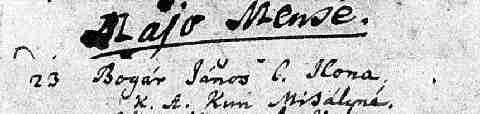 Majo Mense.
23 Bogár János C. Ilona.
K. A. Kun Misályné.